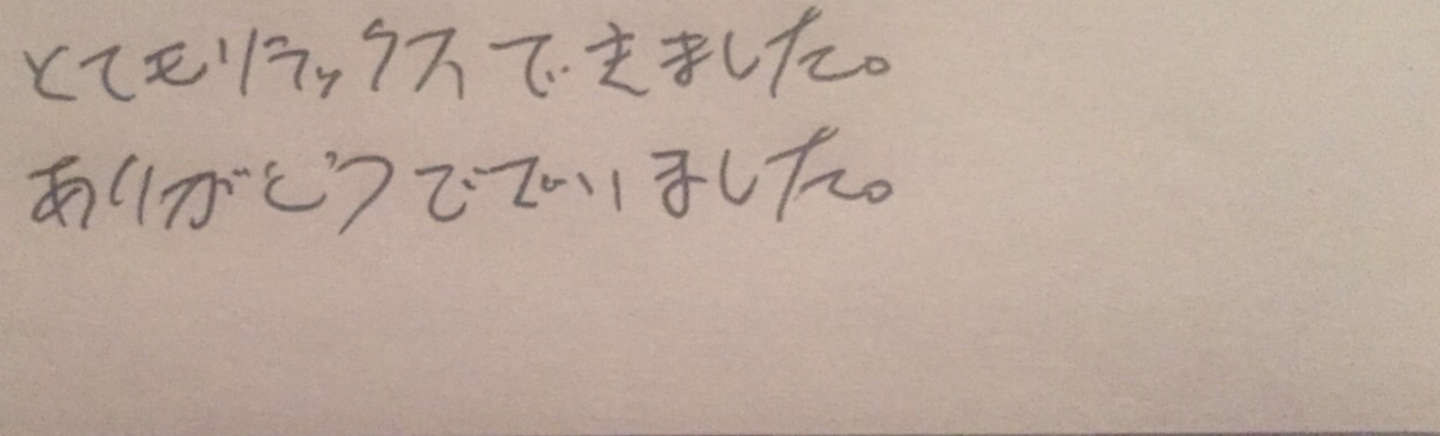 とてもリラックスできました。
ありがとうございました。